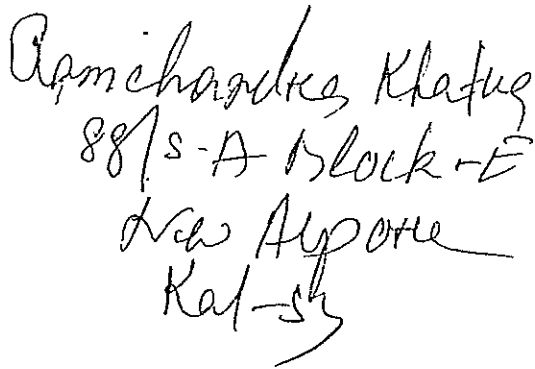 Ramchandra Khatua
88/5-A Block-E
New Alipore
Kal-53